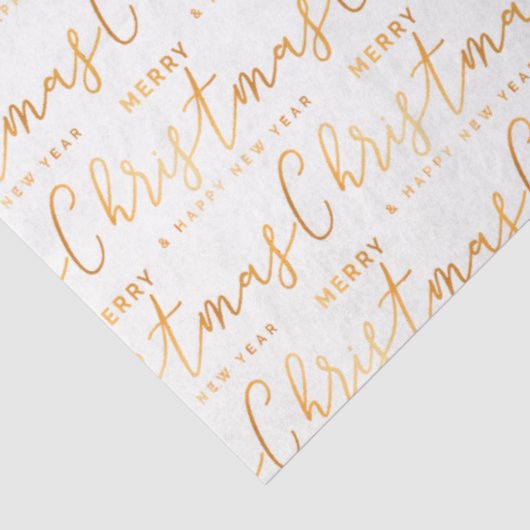 & HAPPY NEW YEAR
MERRY
Christmas
& HAPPY NEW YEAR
MERRY
Christmas
& HAPPY NEW YEAR
NEW YEAR
MERRY
Christmas
NEW YEAR